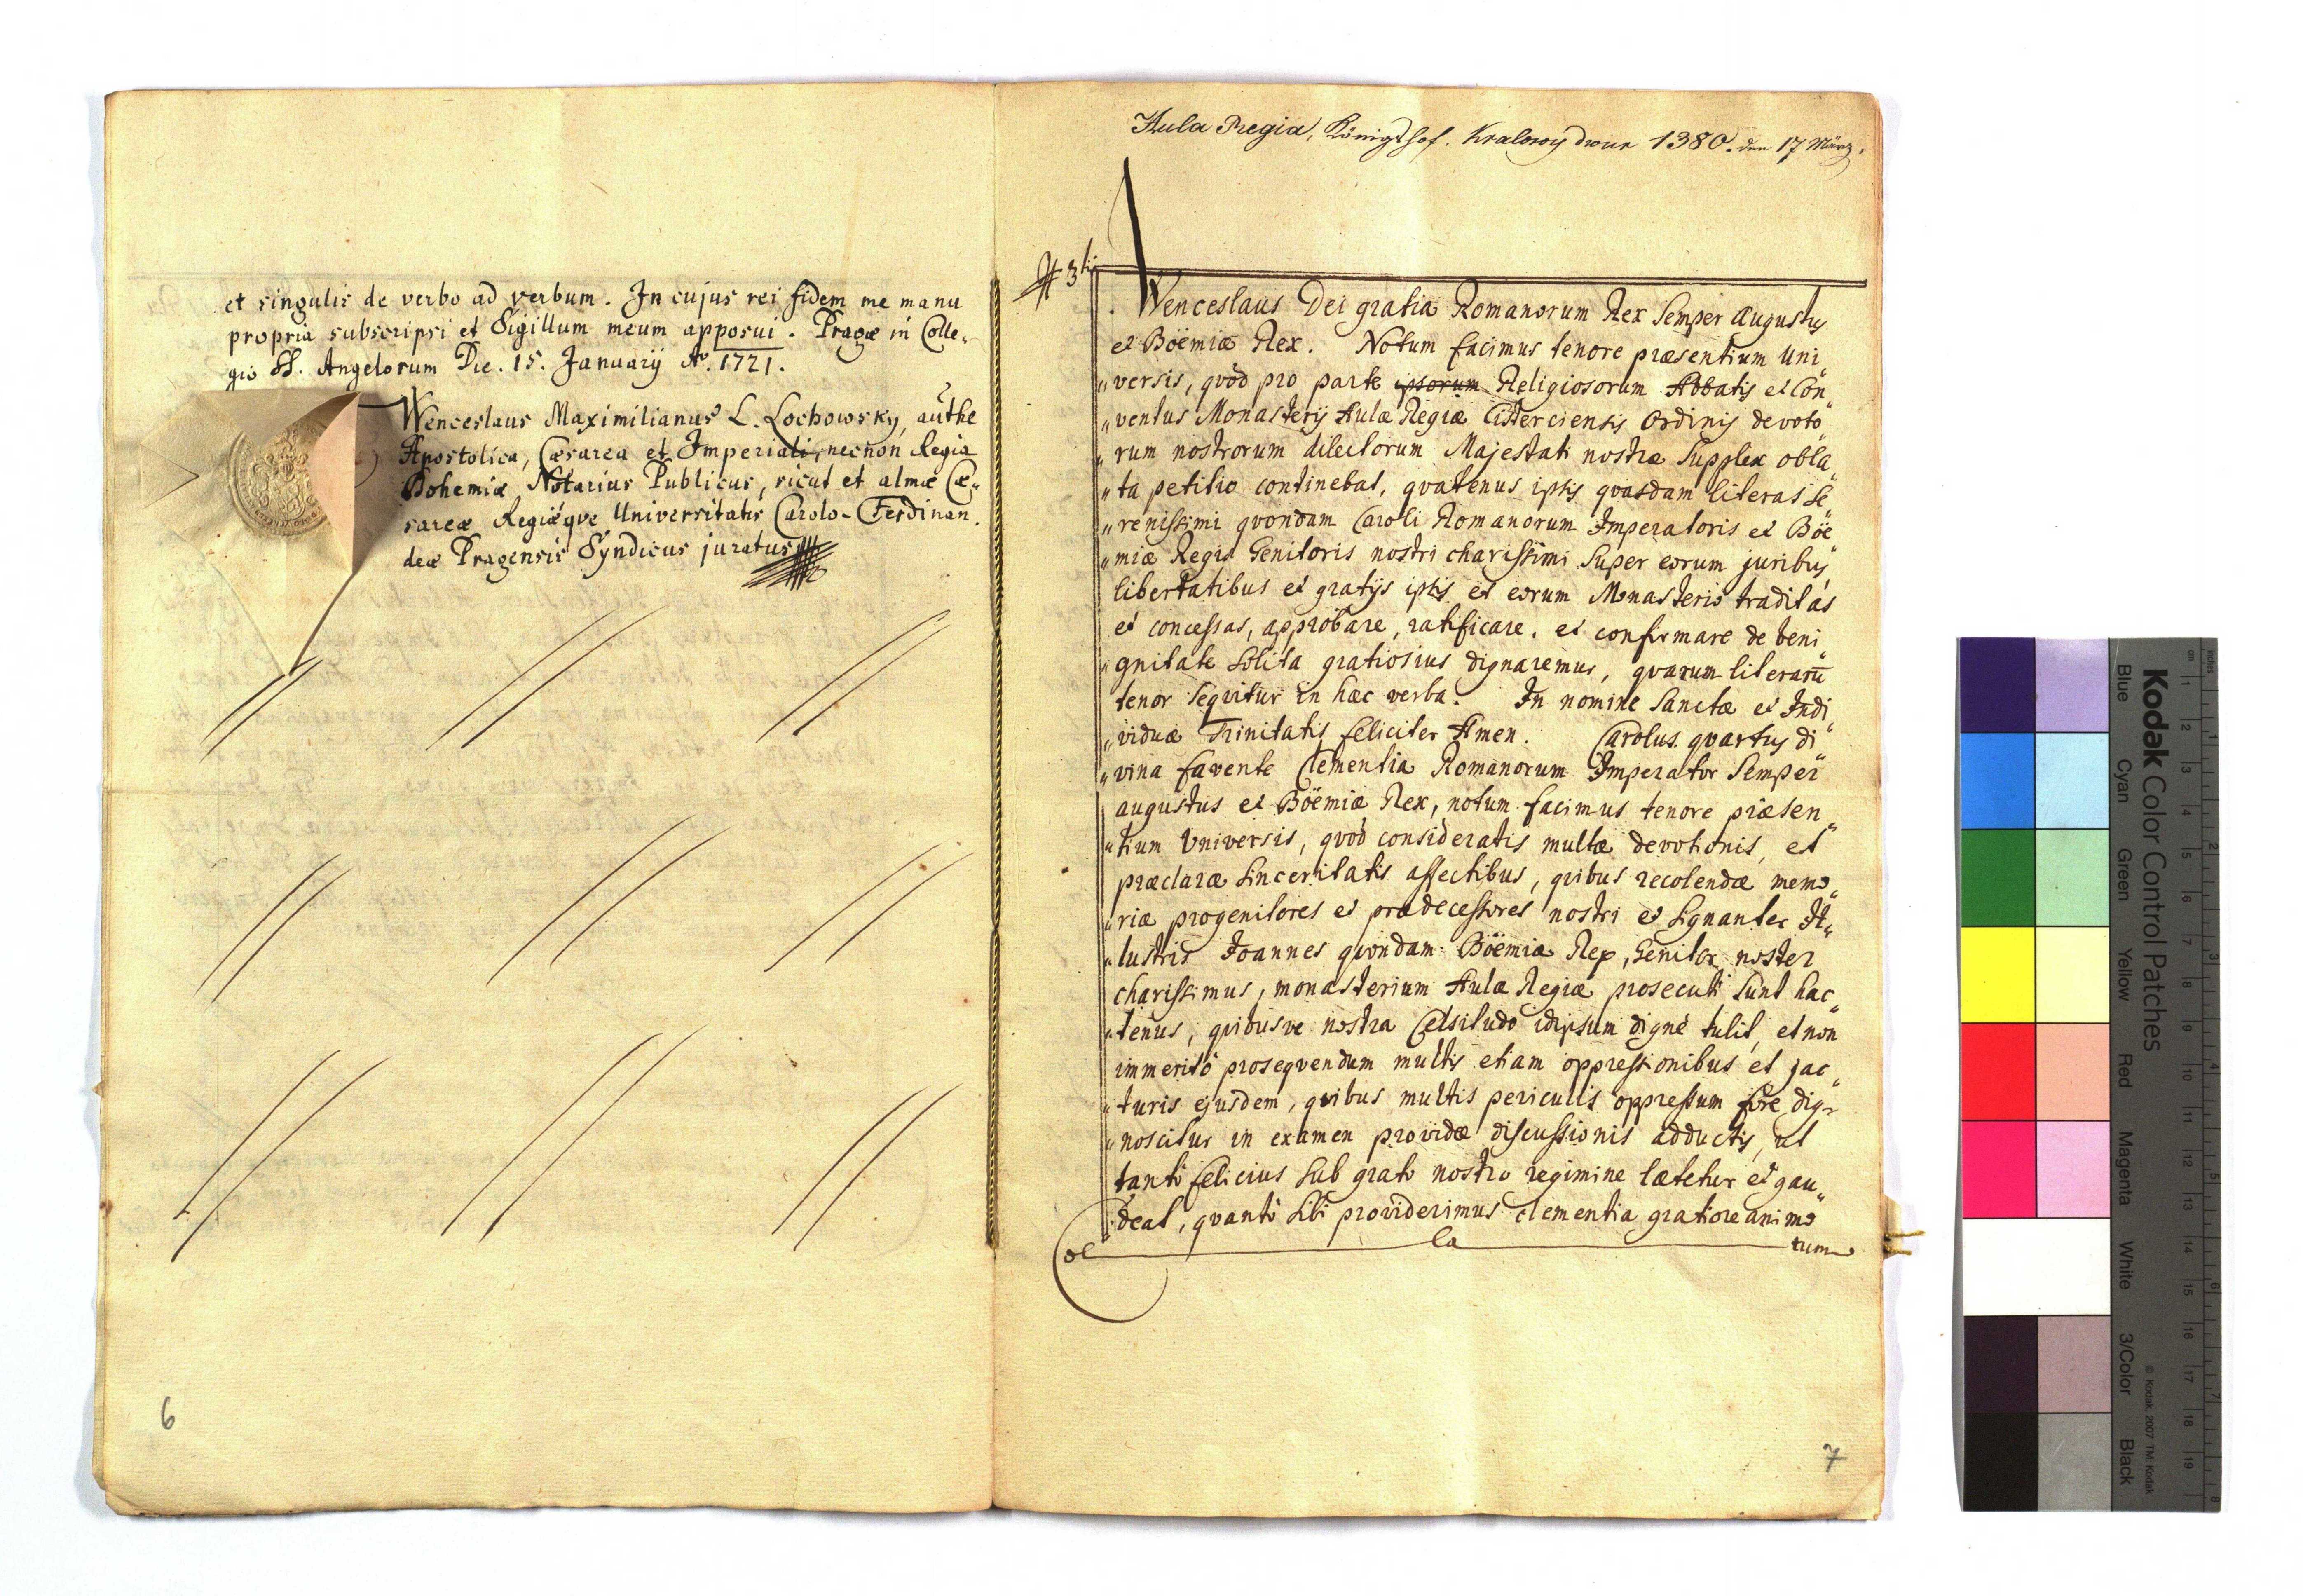 et singulis de verbo ad verbum. In cujus rei fidem me manu
propria subscripsi et Sigillum meum apposui. Pragæ in Colle„
gio SS. Angelorum Die. 15. Januarij Aº. 1721.
Wenceslaus Maximilianus L. Lochowsky, authe
Apostolica, Cæsarea et Imperiali, necnon Regia
Bohemiæ Notarius Publicus, sicut et almæ Cæ„
sareæ Regiæqve Universitatis Carolo-Ferdinan.
deæ Pragensis Syndicus juratus
6
Aula Regia, Königshof. Kralowy dwur 1380. den 17 März.
# 3tij
Wenceslaus Dei gratia Romanorum Rex Semper Augustus
et Böemiæ Rex. Notum facimus tenore præsentium Uni„
„versis, qvòd pro parte ipsorum Religiosorum Abbatis et Con„
„ventus Monasterij Aulæ Regiæ Cisterciensis Ordinis devoto„
„rum nostrorum dilectorum Majestati nostræ Supplex obla„
„ta petitio continebat, qvatenus ipsis qvasdam literas Se„
„renissimi qvondam Caroli Romanorum Imperatoris et Böe„
„miæ Regis Genitoris nostri charissimi Super eorum juribus,
libertatibus et gratijs ipsis et eorum Monasterio traditas
et concessas, approbare, ratificare, et confirmare de beni„
„gnitate Solita gratiosius dignaremur, qvarum literarū
tenor Seqvitur in hæc verba. In nomine Sanctæ et Indi„
„viduæ Trinitatis feliciter Amen. Carolus qvartus di„
„vina favente Clementia Romanorum Imperator Semper
augustus et Böemiæ Rex, notum facimus tenore præsen„
„tium Universis, qvòd consideratis multæ devotionis, et
præclaræ Sinceritatis affectibus, qvibus recolendæ memo„
„riæ progenitores et prædecessores nostri et Signanter Il„
„lustris Joannes qvondam Böemiæ Rex, Genitor noster
charissimus, monasterium Aulæ Regiæ prosecuti Sunt hac„
„tenus, qvibusve nostra Celsitudo idipsum dignè tulit, et non
immeritò proseqvendum multis etiam oppressionibus et jac„
„turis ejusdem, qvibus multis periculis oppressum fore dig„
„noscitur in examen providæ discussionis adductis, ut
tantò felicius Sub grato nostro regimine lætetur et gau„
„deat, qvantò Sibi providerimus clementia gratiore animo
ol la tum
7
Kodak Color Control Patches
Blue Cyan Green Yellow Red Magenta White 3/Color Black
© Kodak, 2007 TM: Kodak
cm 1 2 3 4 5 6 7 8 9 10 11 12 13 14 15 16 17 18 19
inches 1 2 3 4 5 6 7 8